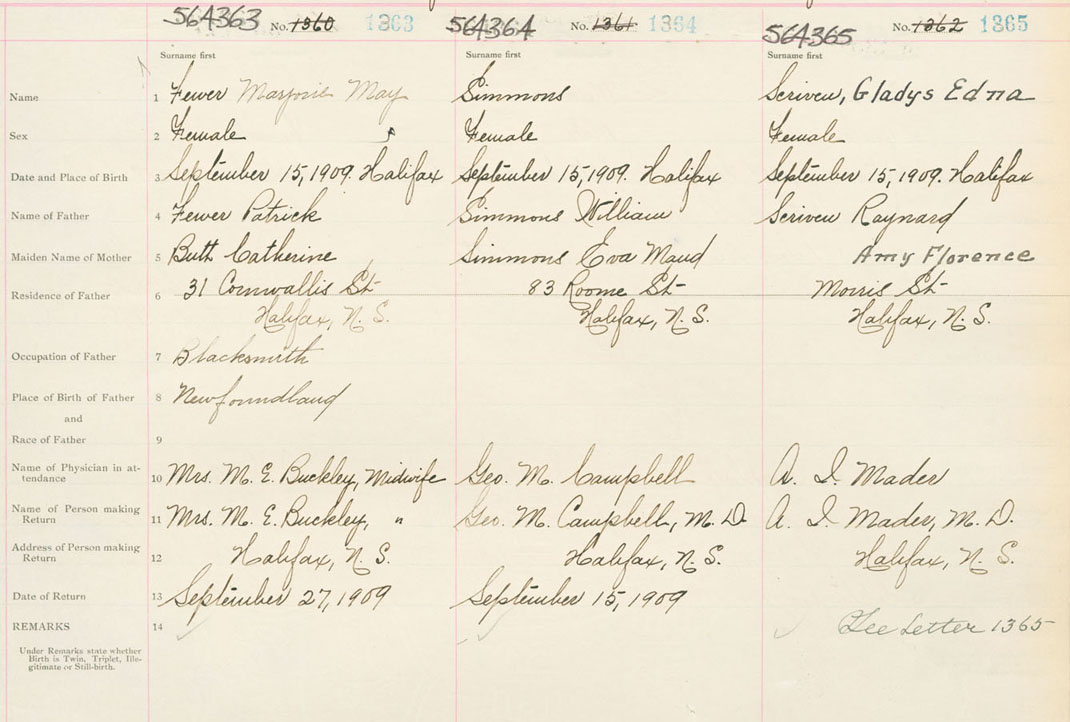 564363 No. 1360 1363 564364 No. 1361 1364 564365 No. 1362 1365
Surname first Surname first Surname first
Name 1 Fewer Marjorie May Simmons Scriven, Gladys Edna
Sex 2 Female Female Female
Date and Place of Birth 3 September 15, 1909. Halifax September 15, 1909. Halifax September 15, 1909. Halifax
Name of Father 4 Fewer Patrick Simmons William Scriven Raynard
Maiden Name of Mother 5 Butt Catherine Simmons Eva Maud Amy Florence
Residence of Father 6 31 Cornwallis St 83 Roome St Morris St
Halifax, N. S. Halifax, N. S. Halifax, N. S.
Occupation of Father 7 Blacksmith
Place of Birth of Father 8 Newfoundland
and
Race of Father 9
Name of Physician in at-
tendance 10 Mrs. M. E. Buckley, Midwife Geo. M. Campbell A. I. Mader
Name of Person making
Return 11 Mrs. M. E. Buckley, " Geo. M. Campbell, M. D. A. I. Mader, M. D.
Address of Person making
Return 12 Halifax, N. S. Halifax, N. S. Halifax, N. S.
Date of Return 13 September 27, 1909 September 15, 1909
REMARKS 14 See Letter 1365
Under Remarks state whether
Birth is Twin, Triplet, Ille-
gitimate or Still-birth.